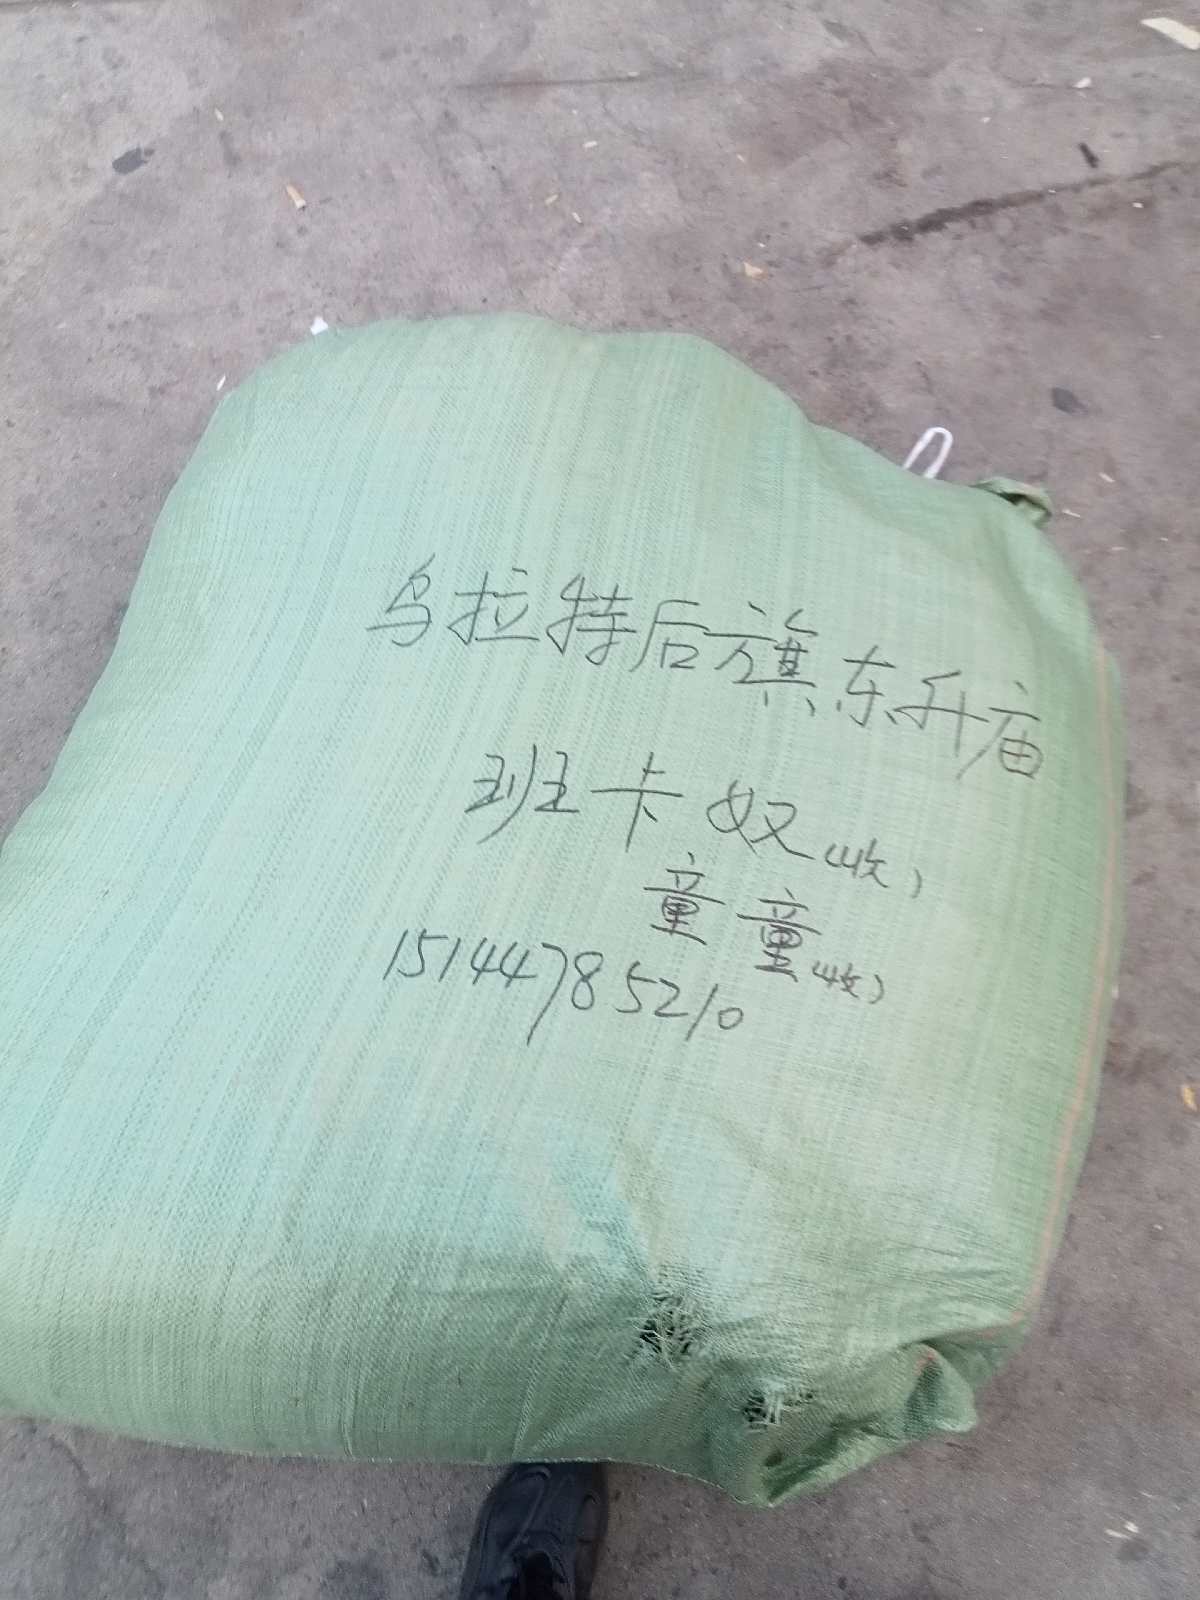 乌拉特后旗东升庙
班卡奴(收)
童童(收)
15144785210